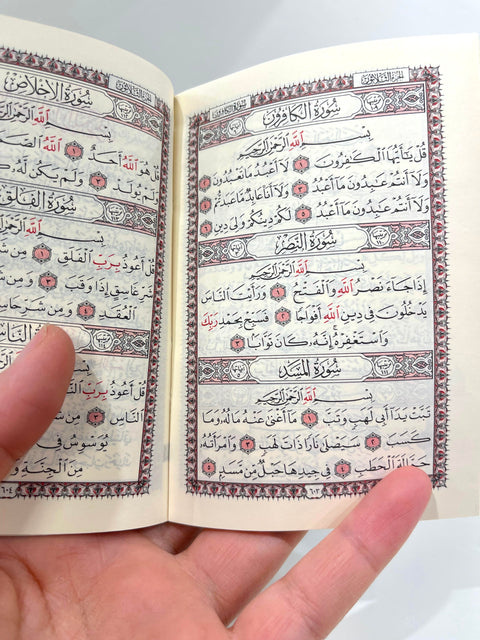 الجزء الثلاثون
سورة الكافرون
سُورَةُ الكَافِرُونَ
بِسْمِ ٱللَّهِ ٱلرَّحْمَٰنِ ٱلرَّحِيمِ
قُلْ يَٰٓأَيُّهَا ٱلْكَٰفِرُونَ ١ لَآ أَعْبُدُ مَا تَعْبُدُونَ ٢
وَلَآ أَنتُمْ عَٰبِدُونَ مَآ أَعْبُدُ ٣ وَلَآ أَنَا۠ عَابِدٌ مَّا عَبَدتُّمْ ٤
وَلَآ أَنتُمْ عَٰبِدُونَ مَآ أَعْبُدُ ٥ لَكُمْ دِينُكُمْ وَلِىَ دِينِ ٦
سُورَةُ النَّصْرِ
بِسْمِ ٱللَّهِ ٱلرَّحْمَٰنِ ٱلرَّحِيمِ
إِذَا جَآءَ نَصْرُ ٱللَّهِ وَٱلْفَتْحُ ١ وَرَأَيْتَ ٱلنَّاسَ
يَدْخُلُونَ فِى دِينِ ٱللَّهِ أَفْوَاجًا ٢ فَسَبِّحْ بِحَمْدِ رَبِّكَ
وَٱسْتَغْفِرْهُ إِنَّهُۥ كَانَ تَوَّابًۢا ٣
سُورَةُ المَسَدِ
بِسْمِ ٱللَّهِ ٱلرَّحْمَٰنِ ٱلرَّحِيمِ
تَبَّتْ يَدَآ أَبِى لَهَبٍ وَتَبَّ ١ مَآ أَغْنَىٰ عَنْهُ مَالُهُۥ وَمَا
كَسَبَ ٢ سَيَصْلَىٰ نَارًا ذَاتَ لَهَبٍ ٣ وَٱمْرَأَتُهُۥ
حَمَّالَةَ ٱلْحَطَبِ ٤ فِى جِيدِهَا حَبْلٌ مِّن مَّسَدٍۭ ٥
٦٠٣
الجزء الثلاثون
سُورَةُ الإِخْلَاصِ
بِسْمِ ٱللَّهِ ٱلرَّحْمَٰنِ
قُلْ هُوَ ٱللَّهُ أَحَدٌ ١ ٱللَّهُ
وَلَمْ يُولَدْ ٣ وَلَمْ يَكُن لَّهُۥ
سُورَةُ الفَلَقِ
بِسْمِ ٱللَّهِ
قُلْ أَعُوذُ بِرَبِّ ٱلْفَلَقِ ١ مِن
شَرِّ غَاسِقٍ إِذَا وَقَبَ ٣
ٱلْعُقَدِ ٤ وَمِن شَرِّ حَاسِدٍ
سُورَةُ النَّاسِ
بِسْمِ ٱللَّهِ
قُلْ أَعُوذُ بِرَبِّ
ٱلنَّاسِ
يُوَسْوِسُ فِى
مِنَ ٱلْجِنَّةِ
٦٠٤